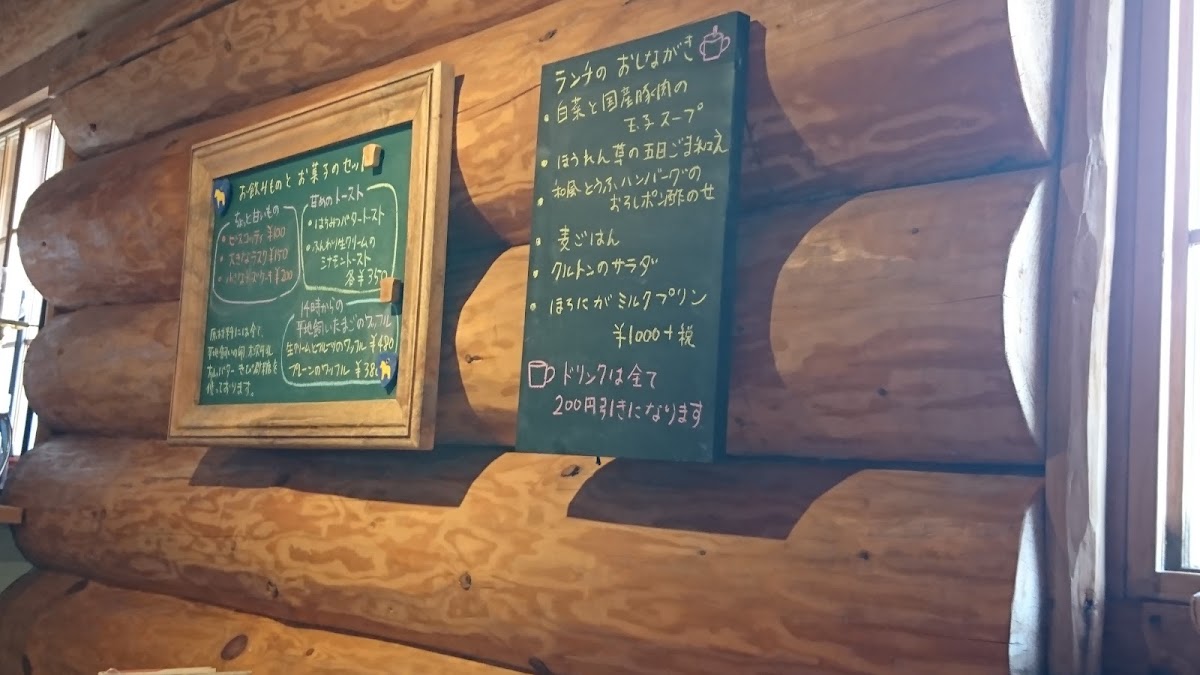 お飲みものとお菓子のセット
ちょっと甘いもの
・ビスコッティ ¥100
・大きなラスク ¥150
¥200
甘めのトースト
・はちみつバタートースト
・ふんわり生クリームの
シナモントースト
各¥350
14時からの
平地飼いたまごのワッフル
生クリームとフルーツのワッフル ¥480
プレーンのワッフル ¥380
使っております。
ランチの おしながき
・白菜と国産豚肉の
玉子スープ
・ほうれん草の五目ごま和え
・和風とうふハンバーグの
・おろしポン酢のせ
・麦ごはん
・クルトンのサラダ
・ほろにがミルクプリン
¥1000+税
ドリンクは全て
200円引きになります